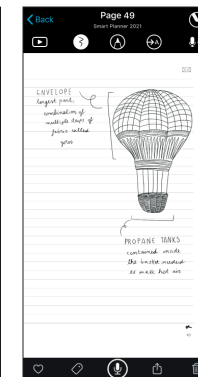 Back
Page 49
Smart Planner 2021
ENVELOPE
largest part,
combination of
multiple days of
fabric called
gores
PROPANE TANKS
contained inside
the basket needed
to make hot air